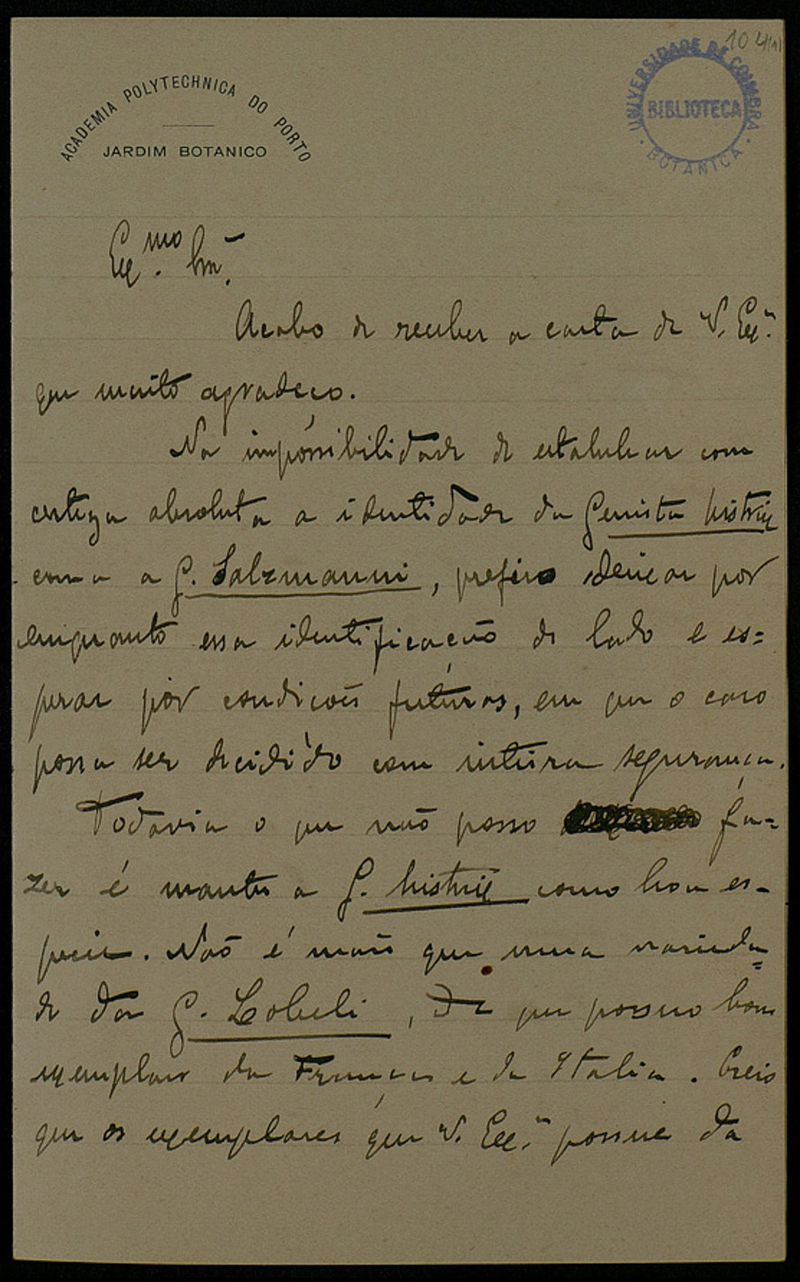 104(1)
ACADEMIA POLYTECHNICA DO PORTO
JARDIM BOTANICO
UNIVERSIDADE DE COIMBRA
BIBLIOTECA
BOTANICA
Exmo. Snr.
Acabo de receber a carta de V. Exa.
que muito agradeço.
Na impossibilidade de estabelecer com
certeza absoluta a identidade da Genista histrix
com a G. Salzmanni, prefiro deixar por
emquanto essa identificação de lado e es-
perar por condições futuras, em que o caso
possa ser decidido com inteira segurança.
Todavia o que não posso fa-
zer é manter a G. histrix como boa es-
pecie. Não é mais que uma varieda-
de da G. Lobelii, de que possuo bons
exemplares da França e da Italia. Creio
que os exemplares que V. Exa. possue da